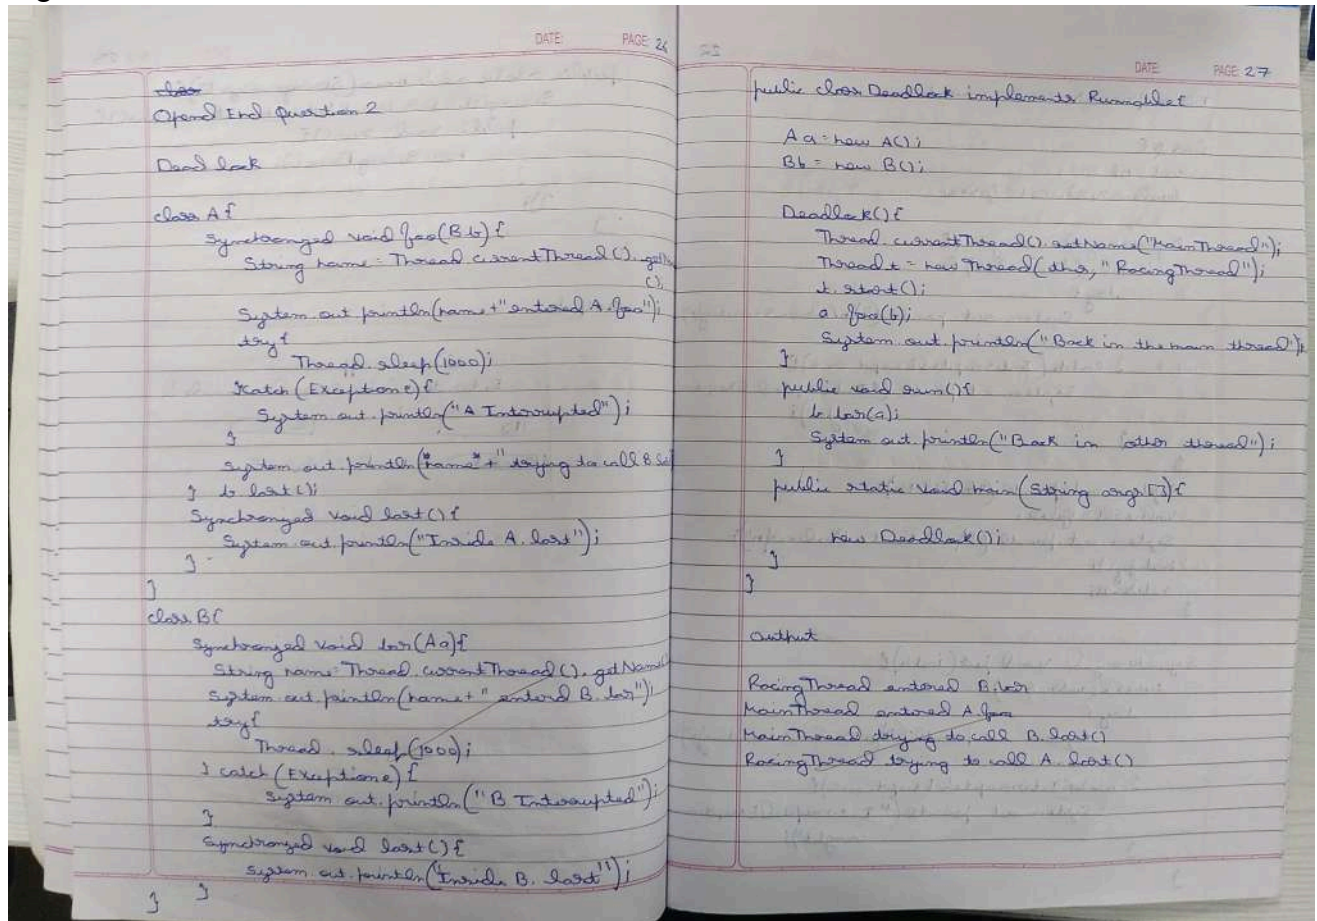 DATE: PAGE: 26
class
Opend End Question 2
Dead lock
class A{
Synchronged void foo(B b) {
String name = Thread.currentThread().getNa
();
System.out.println(name+" entered A.foo");
try{
Thread.sleep(1000);
}catch(Exception e){
System.out.println("A Interrupted");
}
System.out.println(name+" trying to call B.la
} b.last();
Synchronged void last(){
System.out.println("Inside A.last");
}
}
class B{
Synchronged void bar(A a){
String name = Thread.currentThread().getName
System.out.println(name+" enterd B.bar");
try{
Thread.sleep(1000);
} catch(Exception e){
System.out.println("B Interrupted");
}
Synchronged void last(){
System.out.println("Inside B.last");
} }
DATE: PAGE: 27
public class Deadlock implements Runnable{
A a = new A();
B b = new B();
Deadlock(){
Thread.currentThread().setName("MainThread");
Thread t = new Thread(this, "RacingThread");
t.start();
a.foo(b);
System.out.println("Back in the main thread");
}
public void run(){
b.bar(a);
System.out.println("Back in other thread");
}
public static void main(String args[]){
new Deadlock();
}
}
Output
RacingThread entered B.bar
MainThread entered A.foo
MainThread trying to call B.last()
RacingThread trying to call A.last()